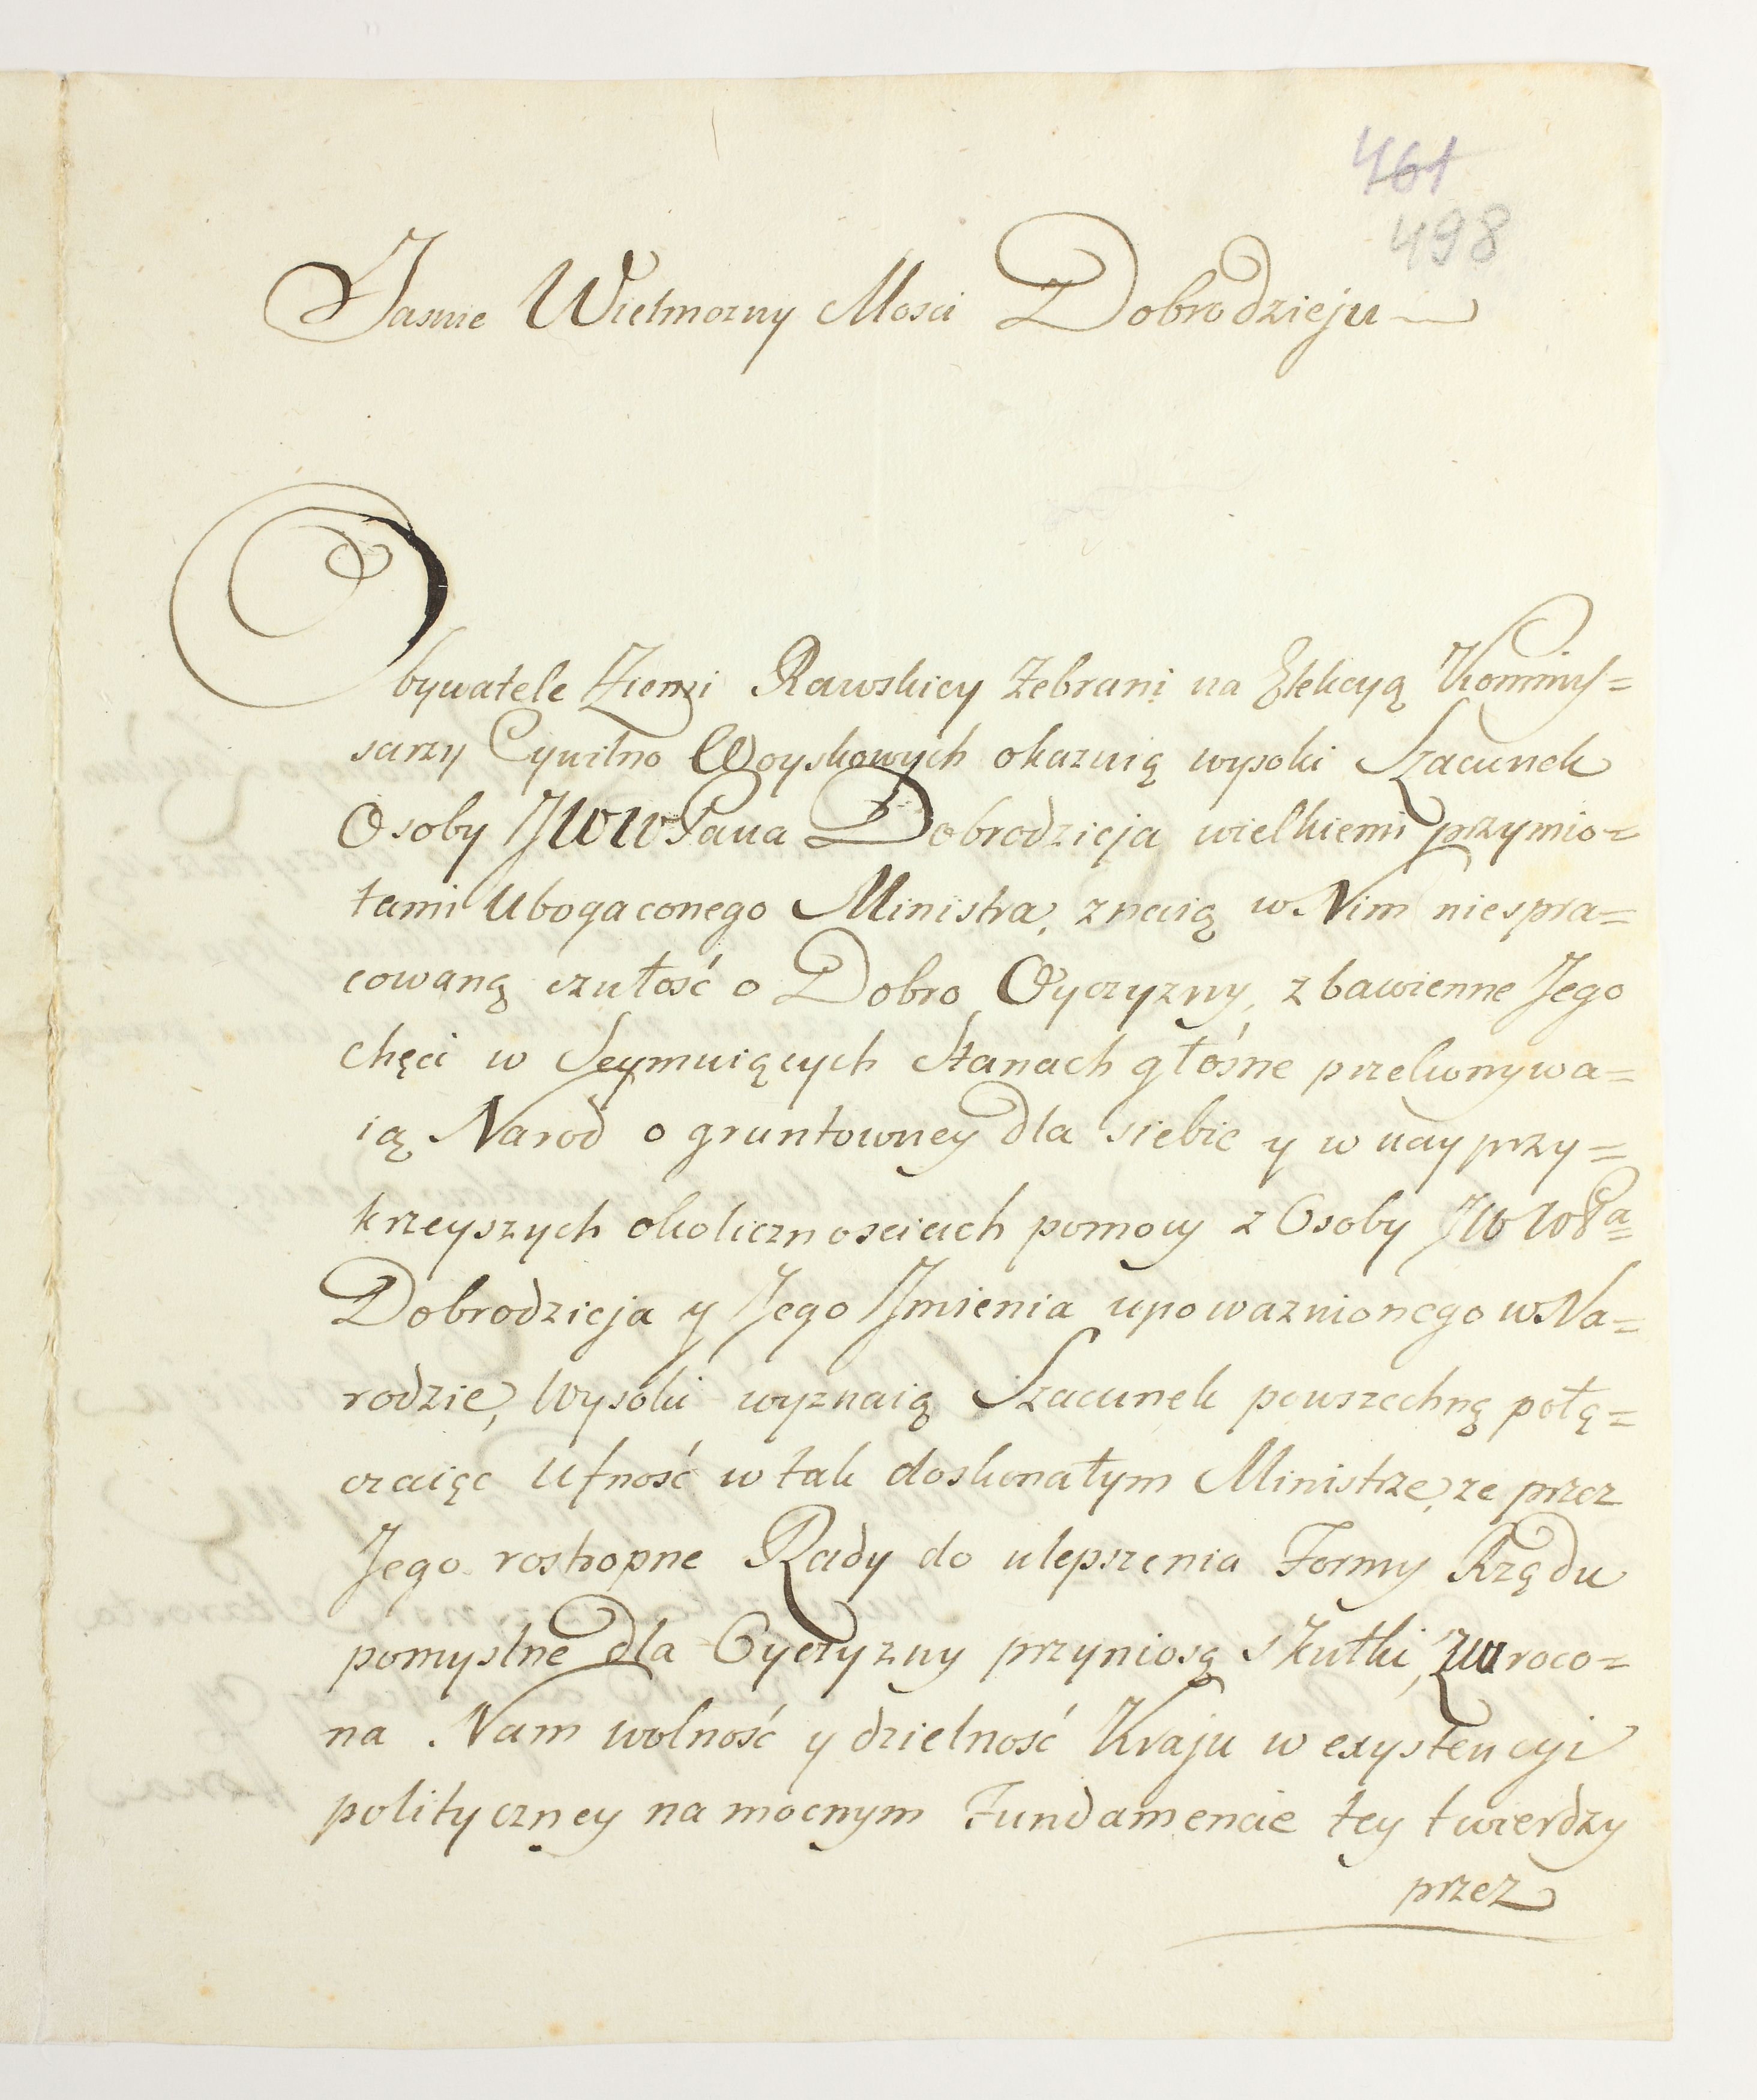 461
498
Jasnie Wielmozny Mosci Dobrodzieju
Obywatele Ziemi Rawskiey Zebrani na Elekcyą Kommis=
sarzy Cywilno Woyskowych okazuią wysoki Szacunek
Osoby JWW Pana Dobrodzieja wielkiemi przymio=
tami Ubogaconego Ministra, znaią w Nim niespra=
cowaną czułość o Dobro Oyczyzny, zbawienne Jego
chęci w Seymuiących Stanach głośne przekonywa=
ią Narod o gruntowney dla siebie y w nay przy=
krzeyszych okolicznosciach pomocy z Osoby JWWPa=
Dobrodzieja y Jego Jmienia upowaznionego w Na=
rodzie, Wysoki wyznaią Szacunek powszechną połą=
czaiąc Ufność w tak doskonałym Ministrze, ze przez
Jego rostropne Rady do ulepszenia Formy Rządu
pomyslne dla Oyczyzny przyniosą skutki, zwroco=
na Nam wolność y dzielność Kraju w exystencyi
polityczney na mocnym Fundamencie tey twierdzy
przez